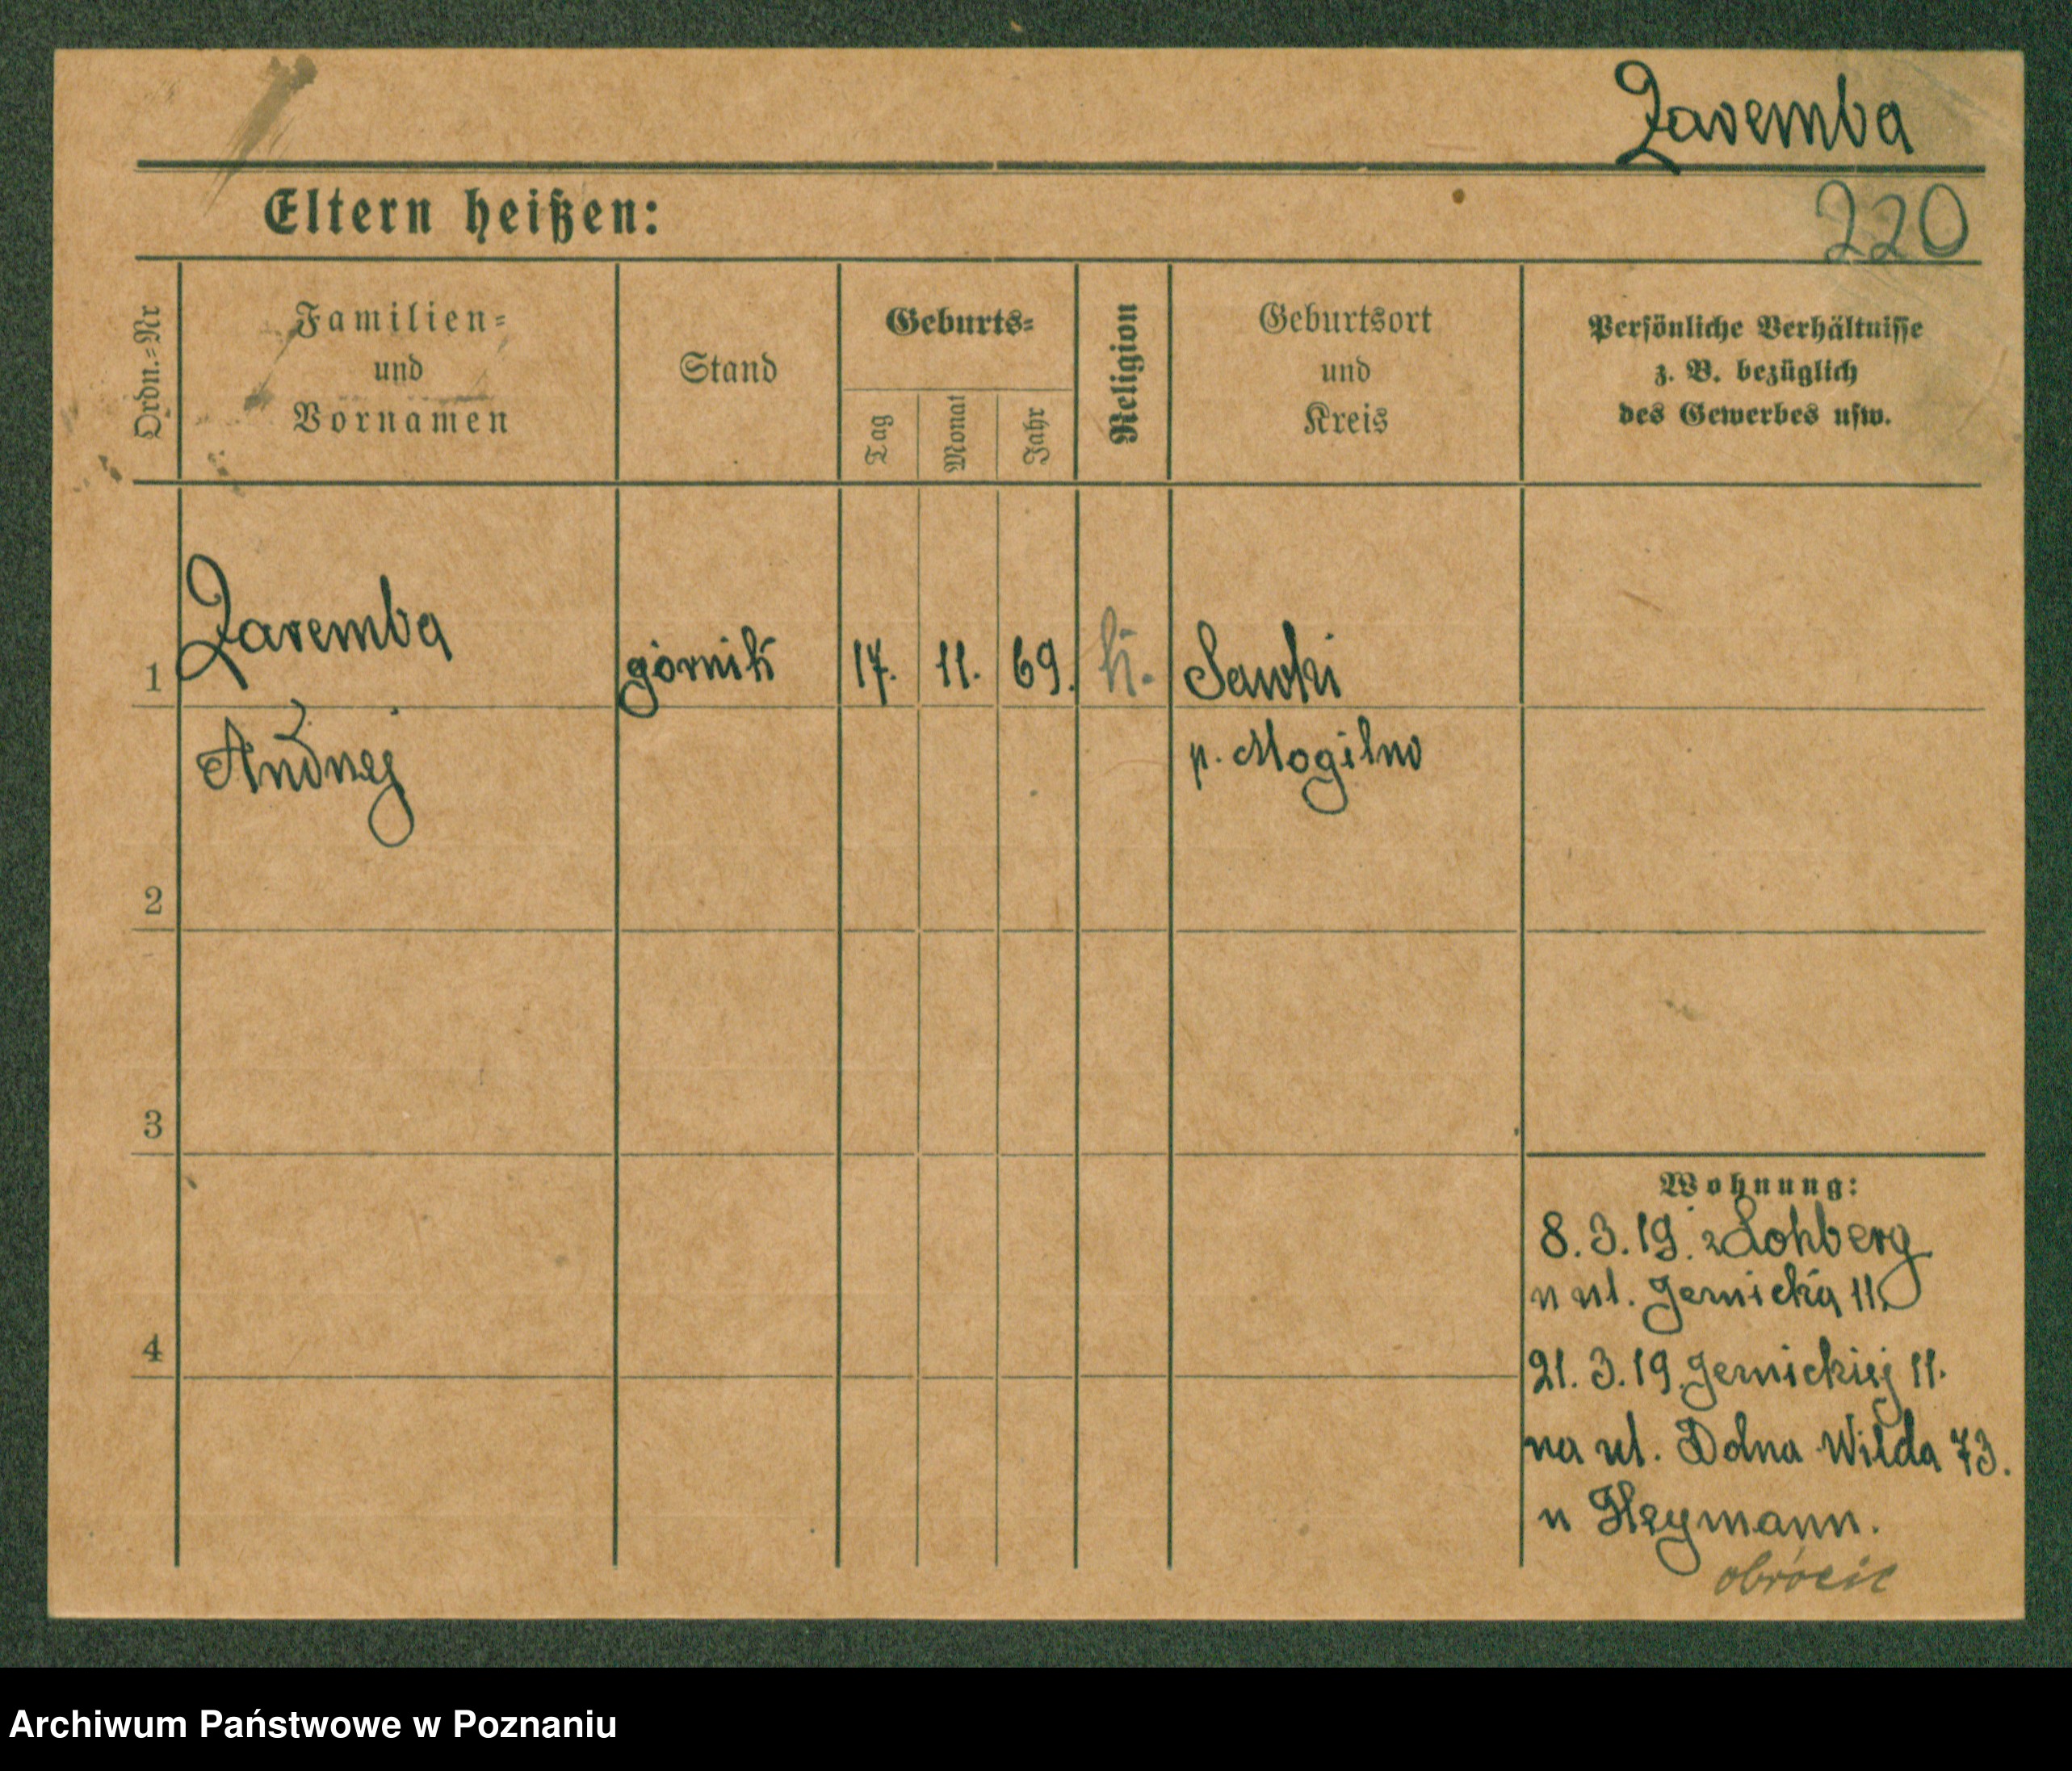 Zaremba
220
Eltern heißen:
Ordn.-Nr
Familien-
und
Vornamen
Stand
Geburts-
Tag
Monat
Jahr
Religion
Geburtsort
und
Kreis
Persönliche Verhältnisse
z. B. bezüglich
des Gewerbes usw.
1
Zaremba
górnik
17.
11.
69.
k.
p. Mogilno
Andrzej
2
3
4
Wohnung:
8. 3. 19. z Lohberg
n ul. 11.
21. 3. 19. 11.
na ul. Dolna Wilda 73.
u Heymann.
obrócić
Archiwum Państwowe w Poznaniu